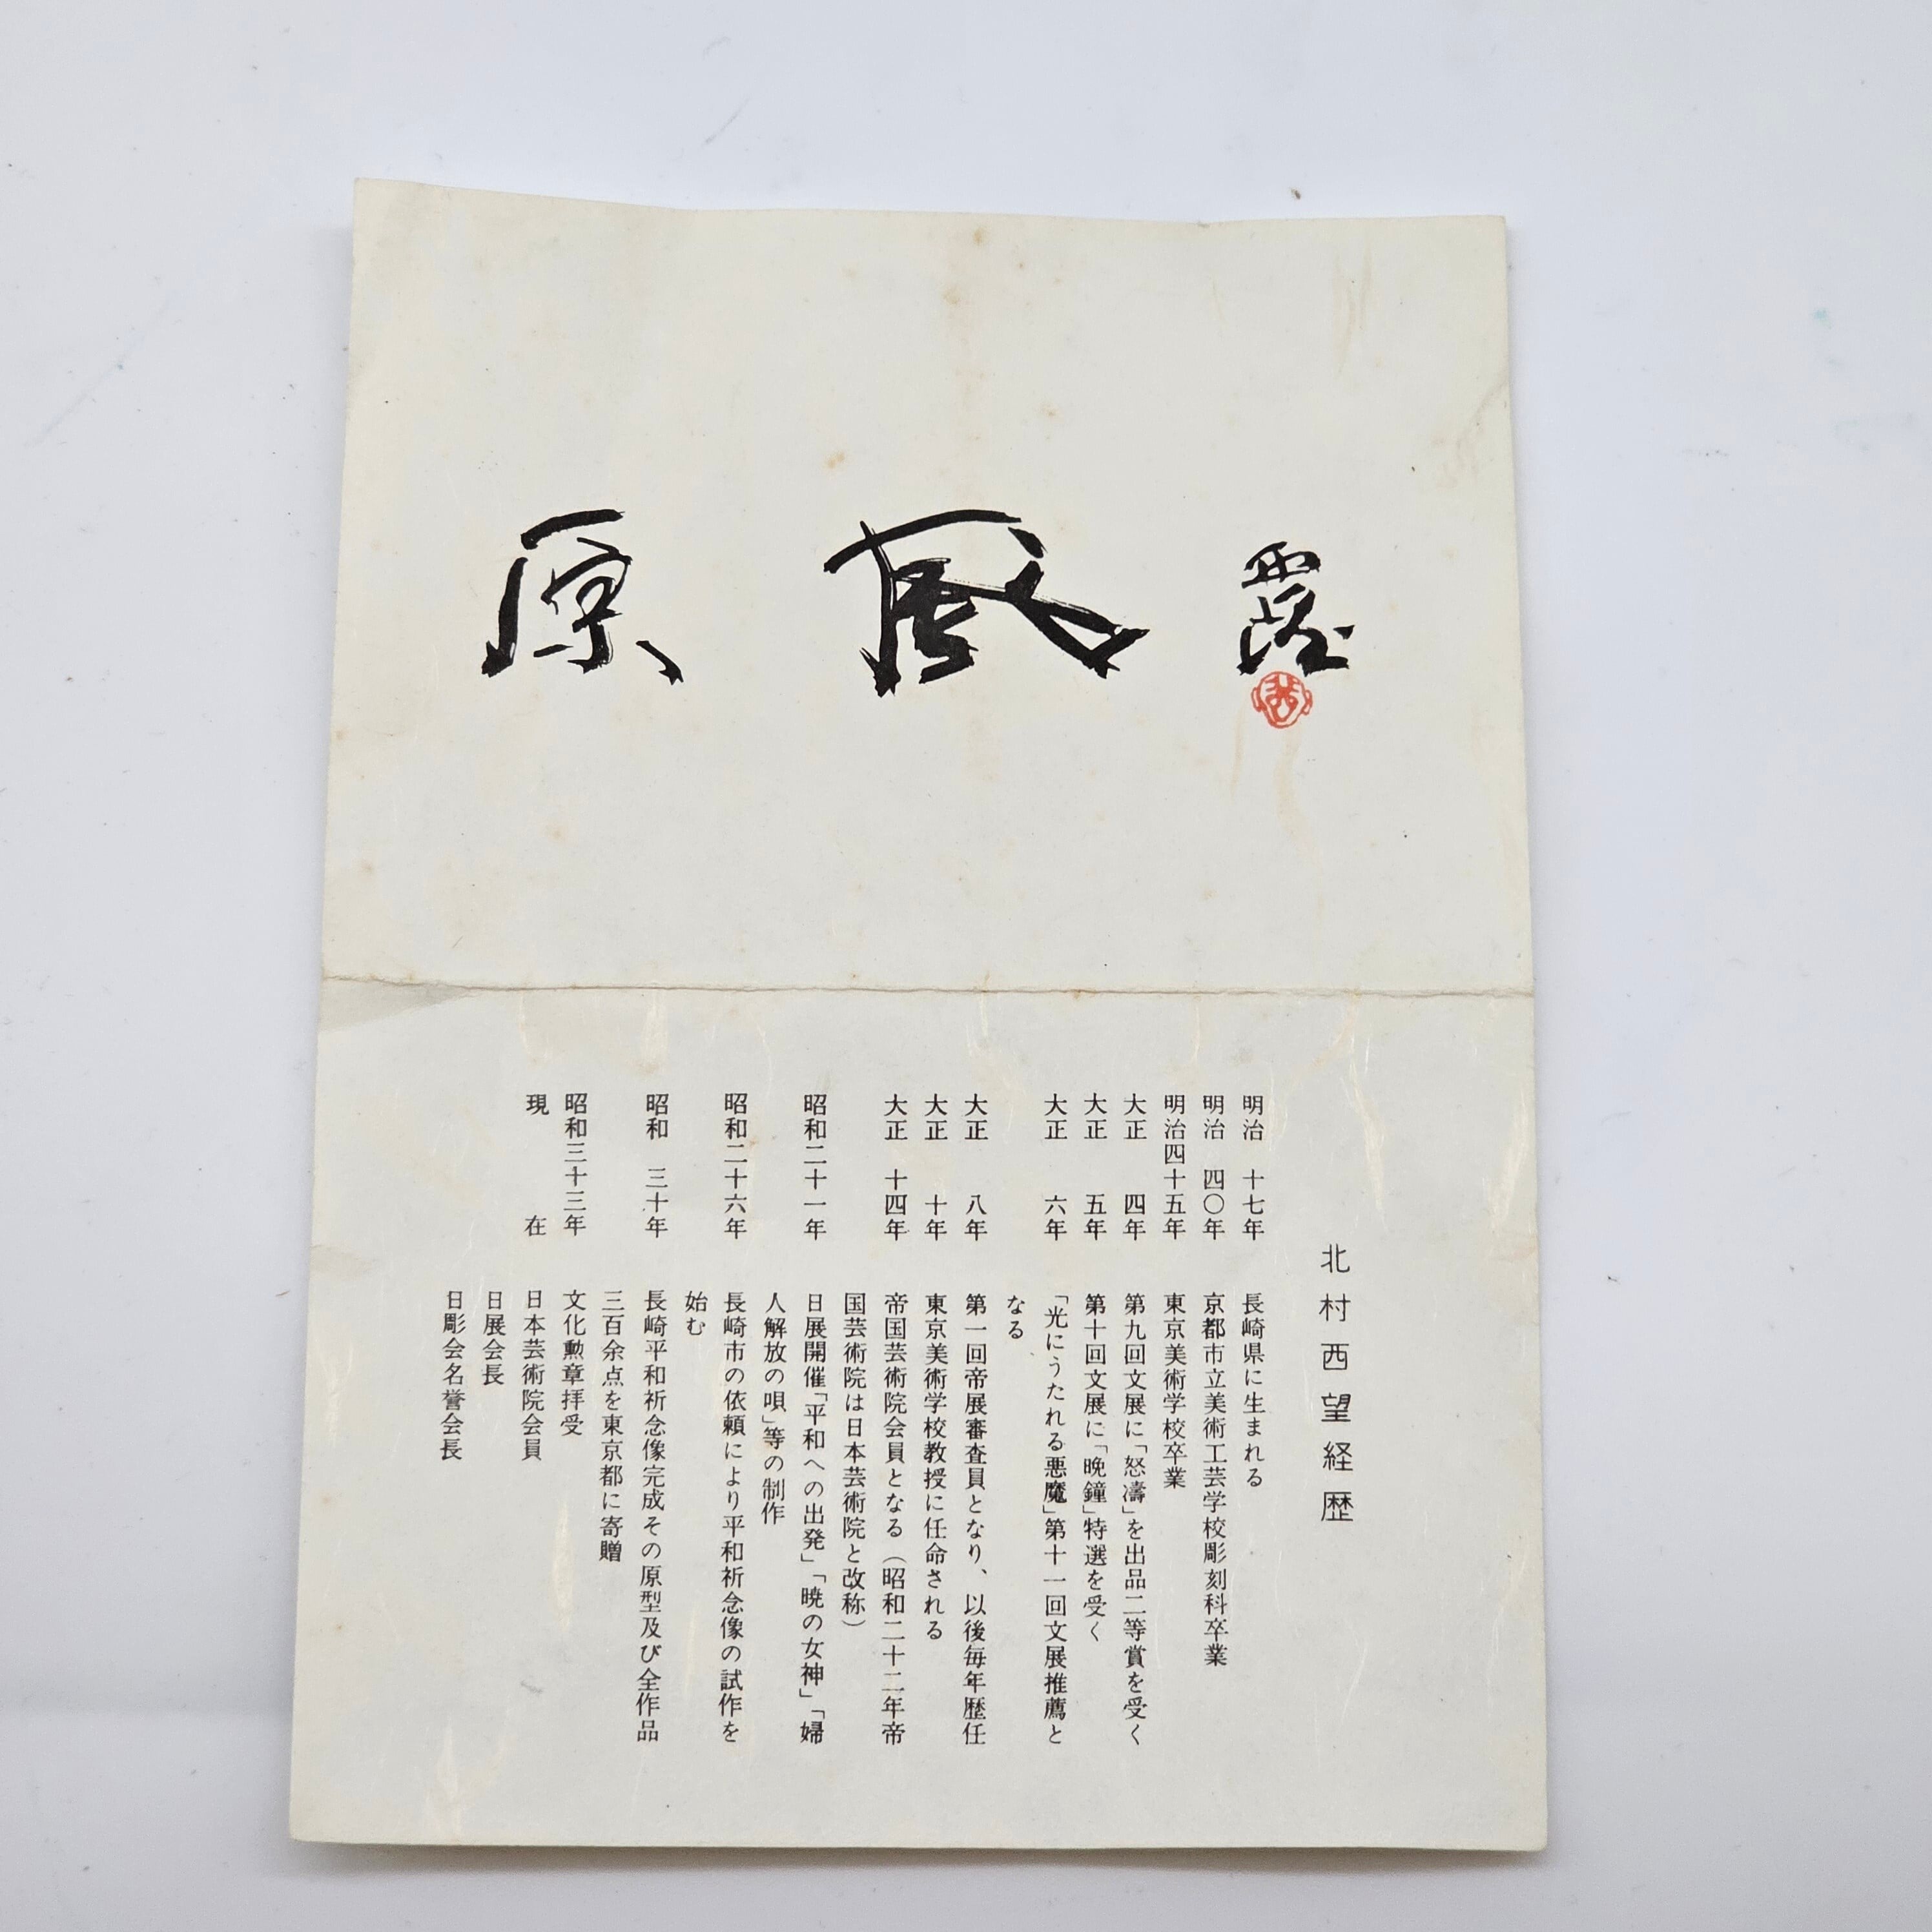 原
西望
北村西望経歴
明治 十七年 長崎県に生まれる
明治 四〇年 京都市立美術工芸学校彫刻科卒業
明治四十五年 東京美術学校卒業
大正 四年 第九回文展に「怒濤」を出品二等賞を受く
大正 五年 第十回文展に「晩鐘」特選を受く
大正 六年 「光にうたれる悪魔」第十一回文展推薦と
なる
大正 八年 第一回帝展審査員となり、以後毎年歴任
大正 十年 東京美術学校教授に任命される
大正 十四年 帝国芸術院会員となる（昭和二十二年帝
国芸術院は日本芸術院と改称）
昭和二十一年 日展開催「平和への出発」「暁の女神」「婦
人解放の唄」等の制作
昭和二十六年 長崎市の依頼により平和祈念像の試作を
始む
昭和 三十年 長崎平和祈念像完成その原型及び全作品
三百余点を東京都に寄贈
昭和三十三年 文化勲章拝受
現在 日本芸術院会員
日展会長
日彫会名誉会長